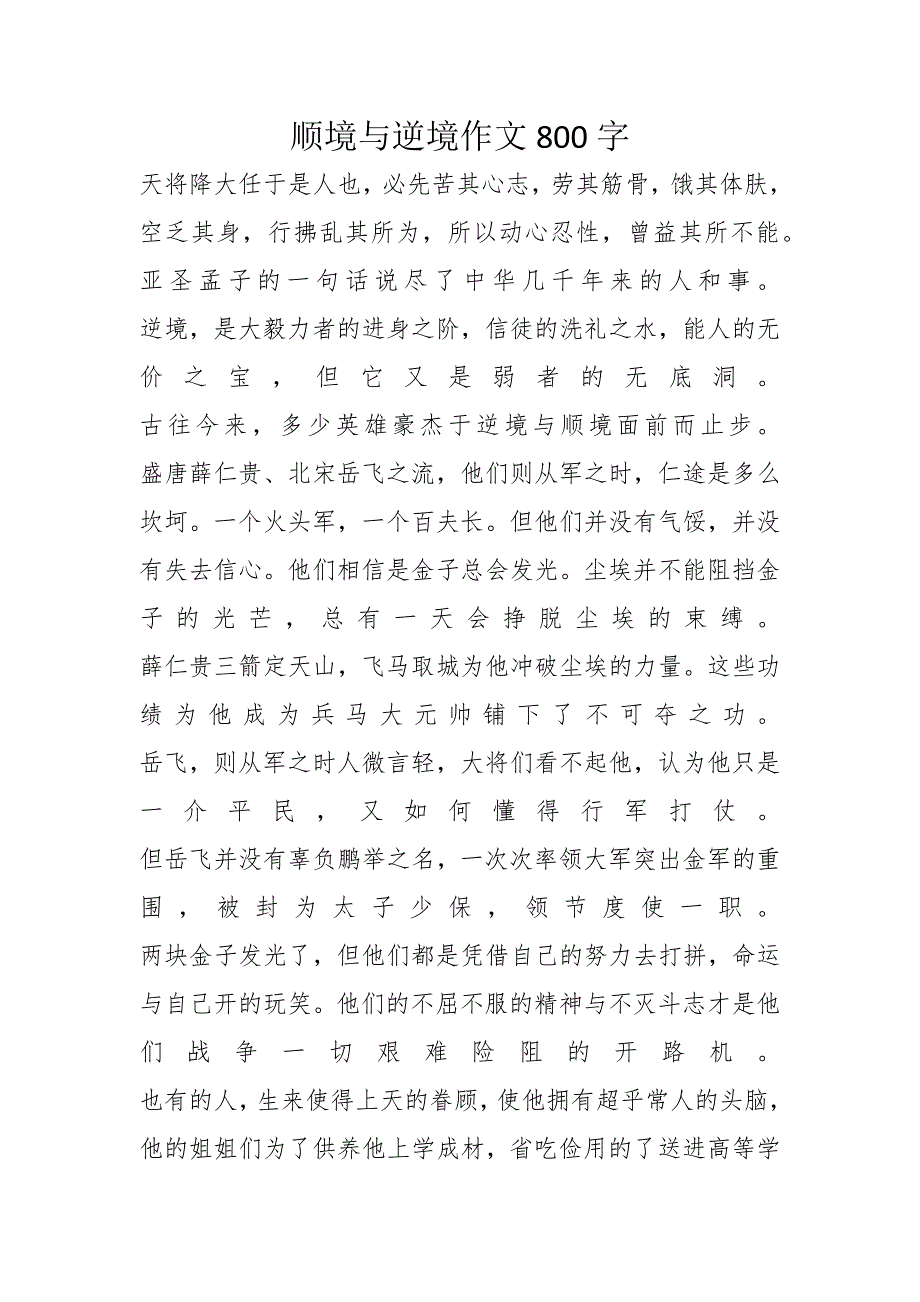 顺境与逆境作文 800 字
天将降大任于是人也，必先苦其心志，劳其筋骨，饿其体肤，
空乏其身，行拂乱其所为，所以动心忍性，曾益其所不能。
亚圣孟子的一句话说尽了中华几千年来的人和事。
逆境，是大毅力者的进身之阶，信徒的洗礼之水，能人的无
价之宝，但它又是弱者的无底洞。
古往今来，多少英雄豪杰于逆境与顺境面前而止步。
盛唐薛仁贵、北宋岳飞之流，他们则从军之时，仁途是多么
坎坷。一个火头军，一个百夫长。但他们并没有气馁，并没
有失去信心。他们相信是金子总会发光。尘埃并不能阻挡金
子的光芒，总有一天会挣脱尘埃的束缚。
薛仁贵三箭定天山，飞马取城为他冲破尘埃的力量。这些功
绩为他成为兵马大元帅铺下了不可夺之功。
岳飞，则从军之时人微言轻，大将们看不起他，认为他只是
一介平民，又如何懂得行军打仗。
但岳飞并没有辜负鹏举之名，一次次率领大军突出金军的重
围，被封为太子少保，领节度使一职。
两块金子发光了，但他们都是凭借自己的努力去打拼，命运
与自己开的玩笑。他们的不屈不服的精神与不灭斗志才是他
们战争一切艰难险阻的开路机。
也有的人，生来使得上天的眷顾，使他拥有超乎常人的头脑，
他的姐姐们为了供养他上学成材，省吃俭用的了送进高等学